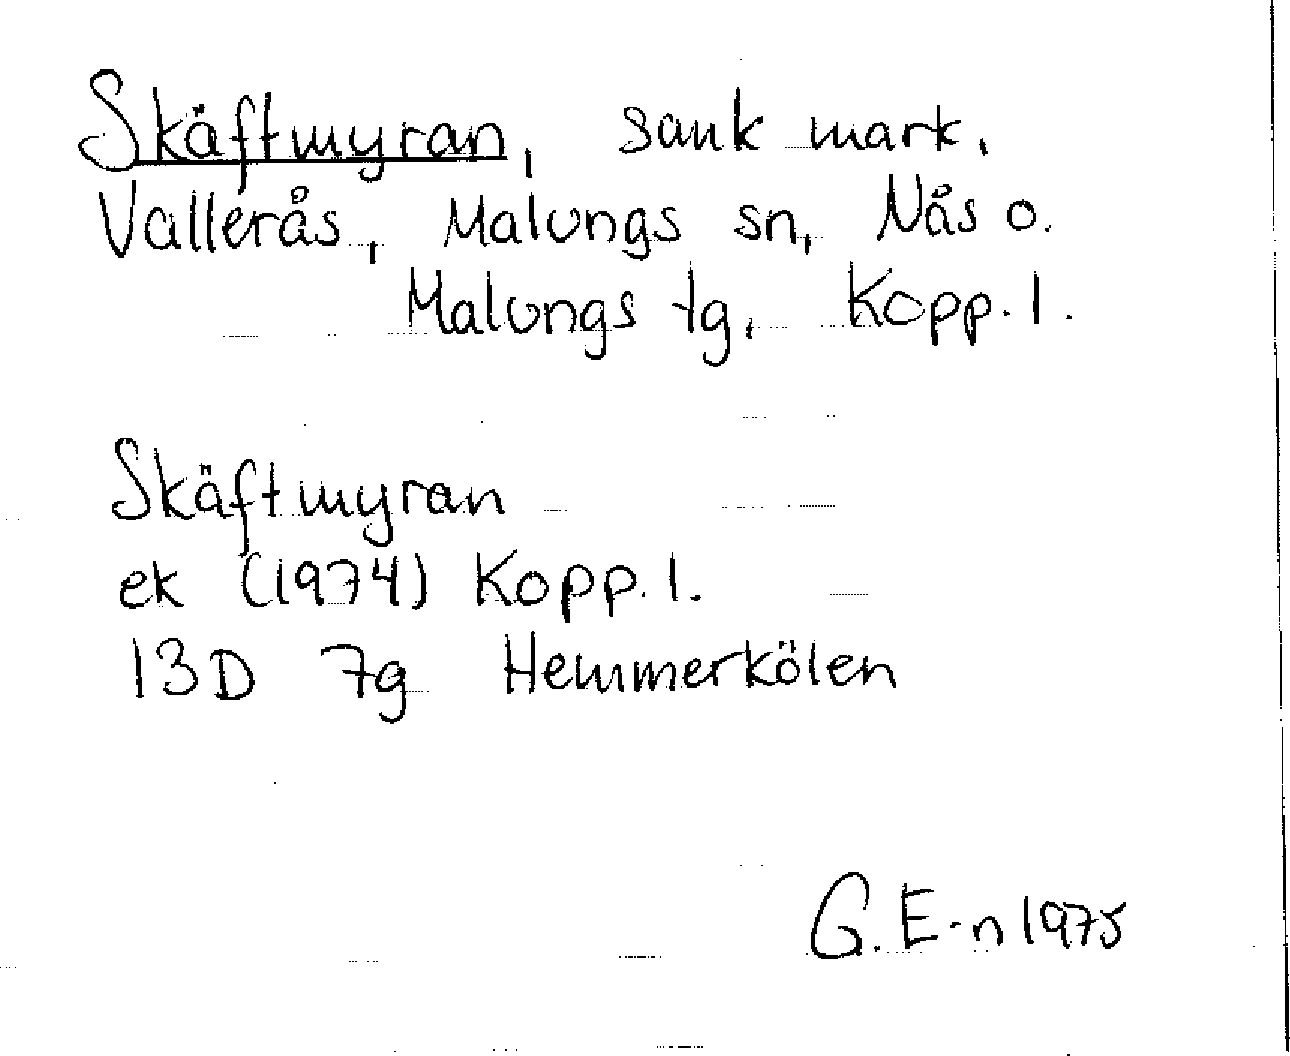 Skäftmyran, sank mark,
Vallerås, Malungs sn, Nås o.
Malungs tg, Kopp. l.
Skäftmyran
ek (1974) Kopp. l.
13D 7g Hemmerkölen
G. E-n 1975